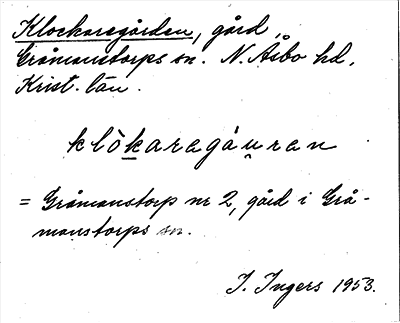 Klockaregården, gård,
Gråmanstorps sn. N. Åsbo hd,
Krist. län.
klòkaregáu̯ran
= Gråmanstorp nr 2, gård i Grå-
manstorps sn.
I. Ingers 1953.